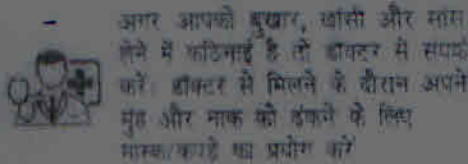 अगर आपको बुखार, खांसी और सांस
लेने में कठिनाई है तो डाक्टर से संपर्क
करें। डाक्टर से मिलने के दौरान अपने
मुंह और नाक को ढंकने के लिए
मास्क/कपड़े का प्रयोग करें